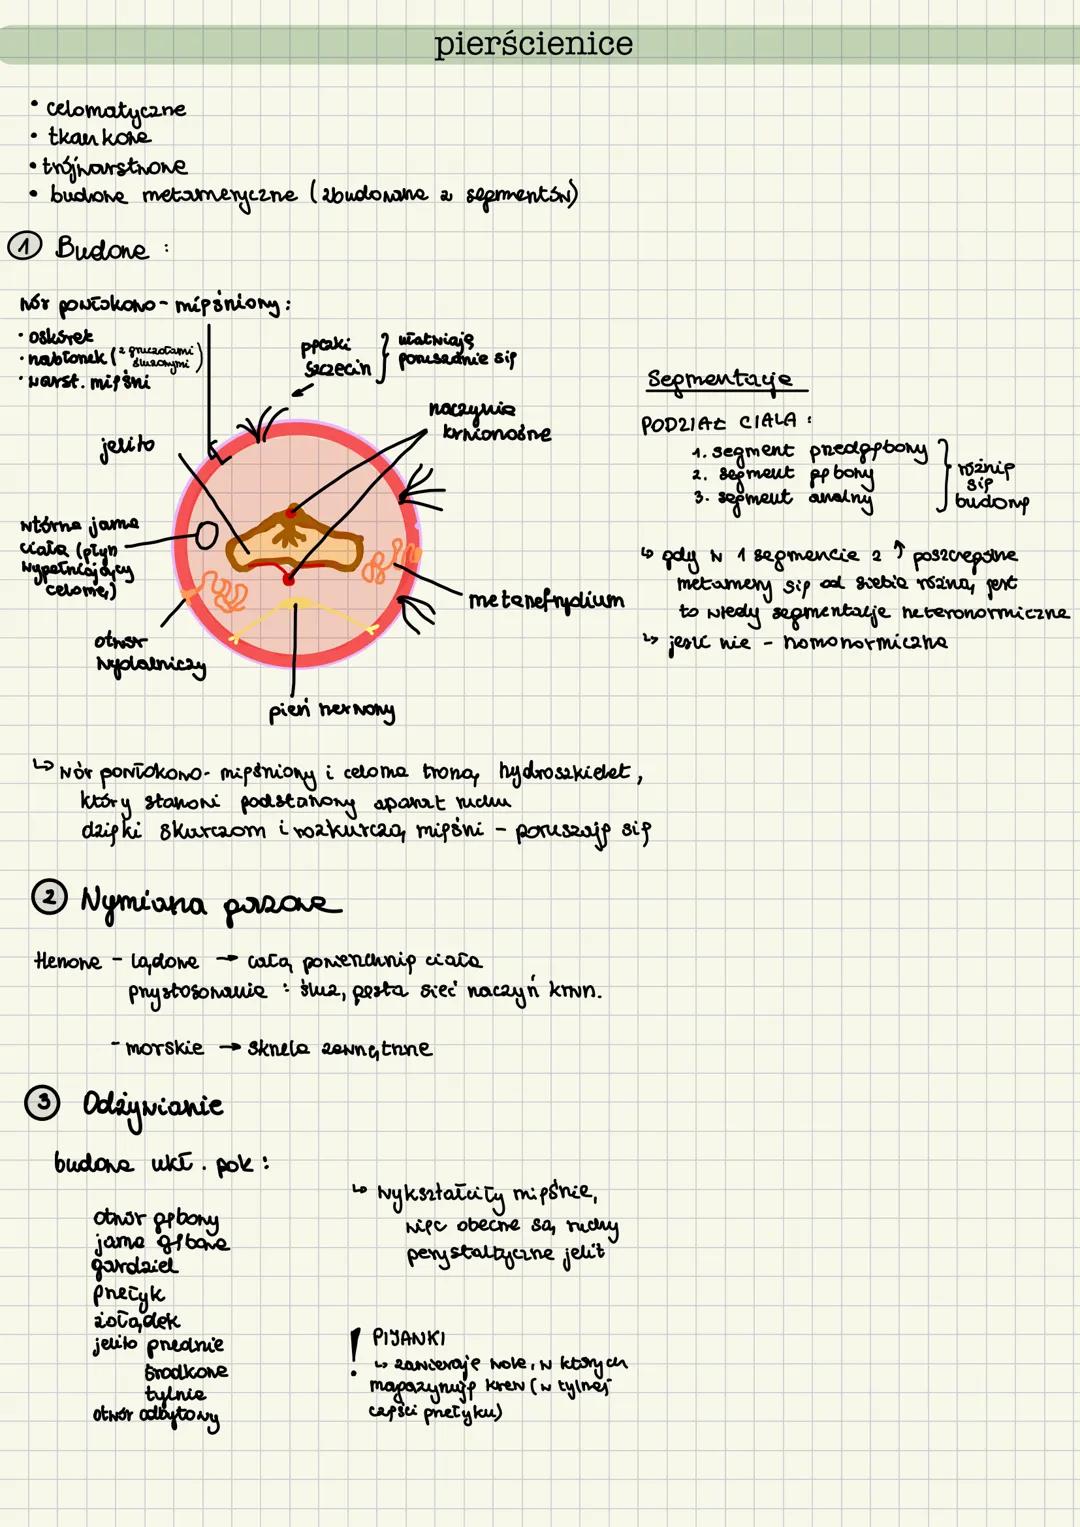 pierścienice
• celomatyczne
• tkankowe
• trójwarstwowe
• budowa metameryczna (zbudowane z segmentów)
① Budowa :
wór powłokowo-mięśniowy :
• oskórek
• nabłonek (z gruczołami śluzowymi)
• warst. mięśni
pęczki szczecin } ułatwiają poruszanie się
naczynia krwionośne
jelito
wtórna jama
ciała (płyn
wypełniający
celomę)
otwór
wydalniczy
metanefrydium
pień nerwowy
Segmentacja
PODZIAŁ CIAŁA :
1. segment przedgębowy
2. segment gębowy
3. segment analny
} różnią się budową
↳ gdy w 1 segmencie z ↑ poszczególne
metamery się od siebie różnią, jest
to wtedy segmentacja heteronomiczna
↳ jeśli nie - homonormiczna
↳ wór powłokowo-mięśniowy i celoma tworzą hydroszkielet,
który stanowi podstawowy aparat ruchu
dzięki skurczom i rozkurczą mięśni - poruszają się
② Wymiana gazowa
- lądowe → całą powierzchnią ciała
przystosowania : śluz, gęsta sieć naczyń krwn.
- morskie → skrzela zewnętrzne
③ Odżywianie
budowa ukł. pok :
otwór gębowy
jama gębowa
gardziel
przełyk
żołądek
jelito przednie
środkowe
tylnie
otwór odbytowy
↳ wykształciły mięśnie,
więc obecne są ruchy
perystaltyczne jelit
! PIJAWKI
↳ zawierają wole, w których
magazynują krew (w tylnej
części przełyku)